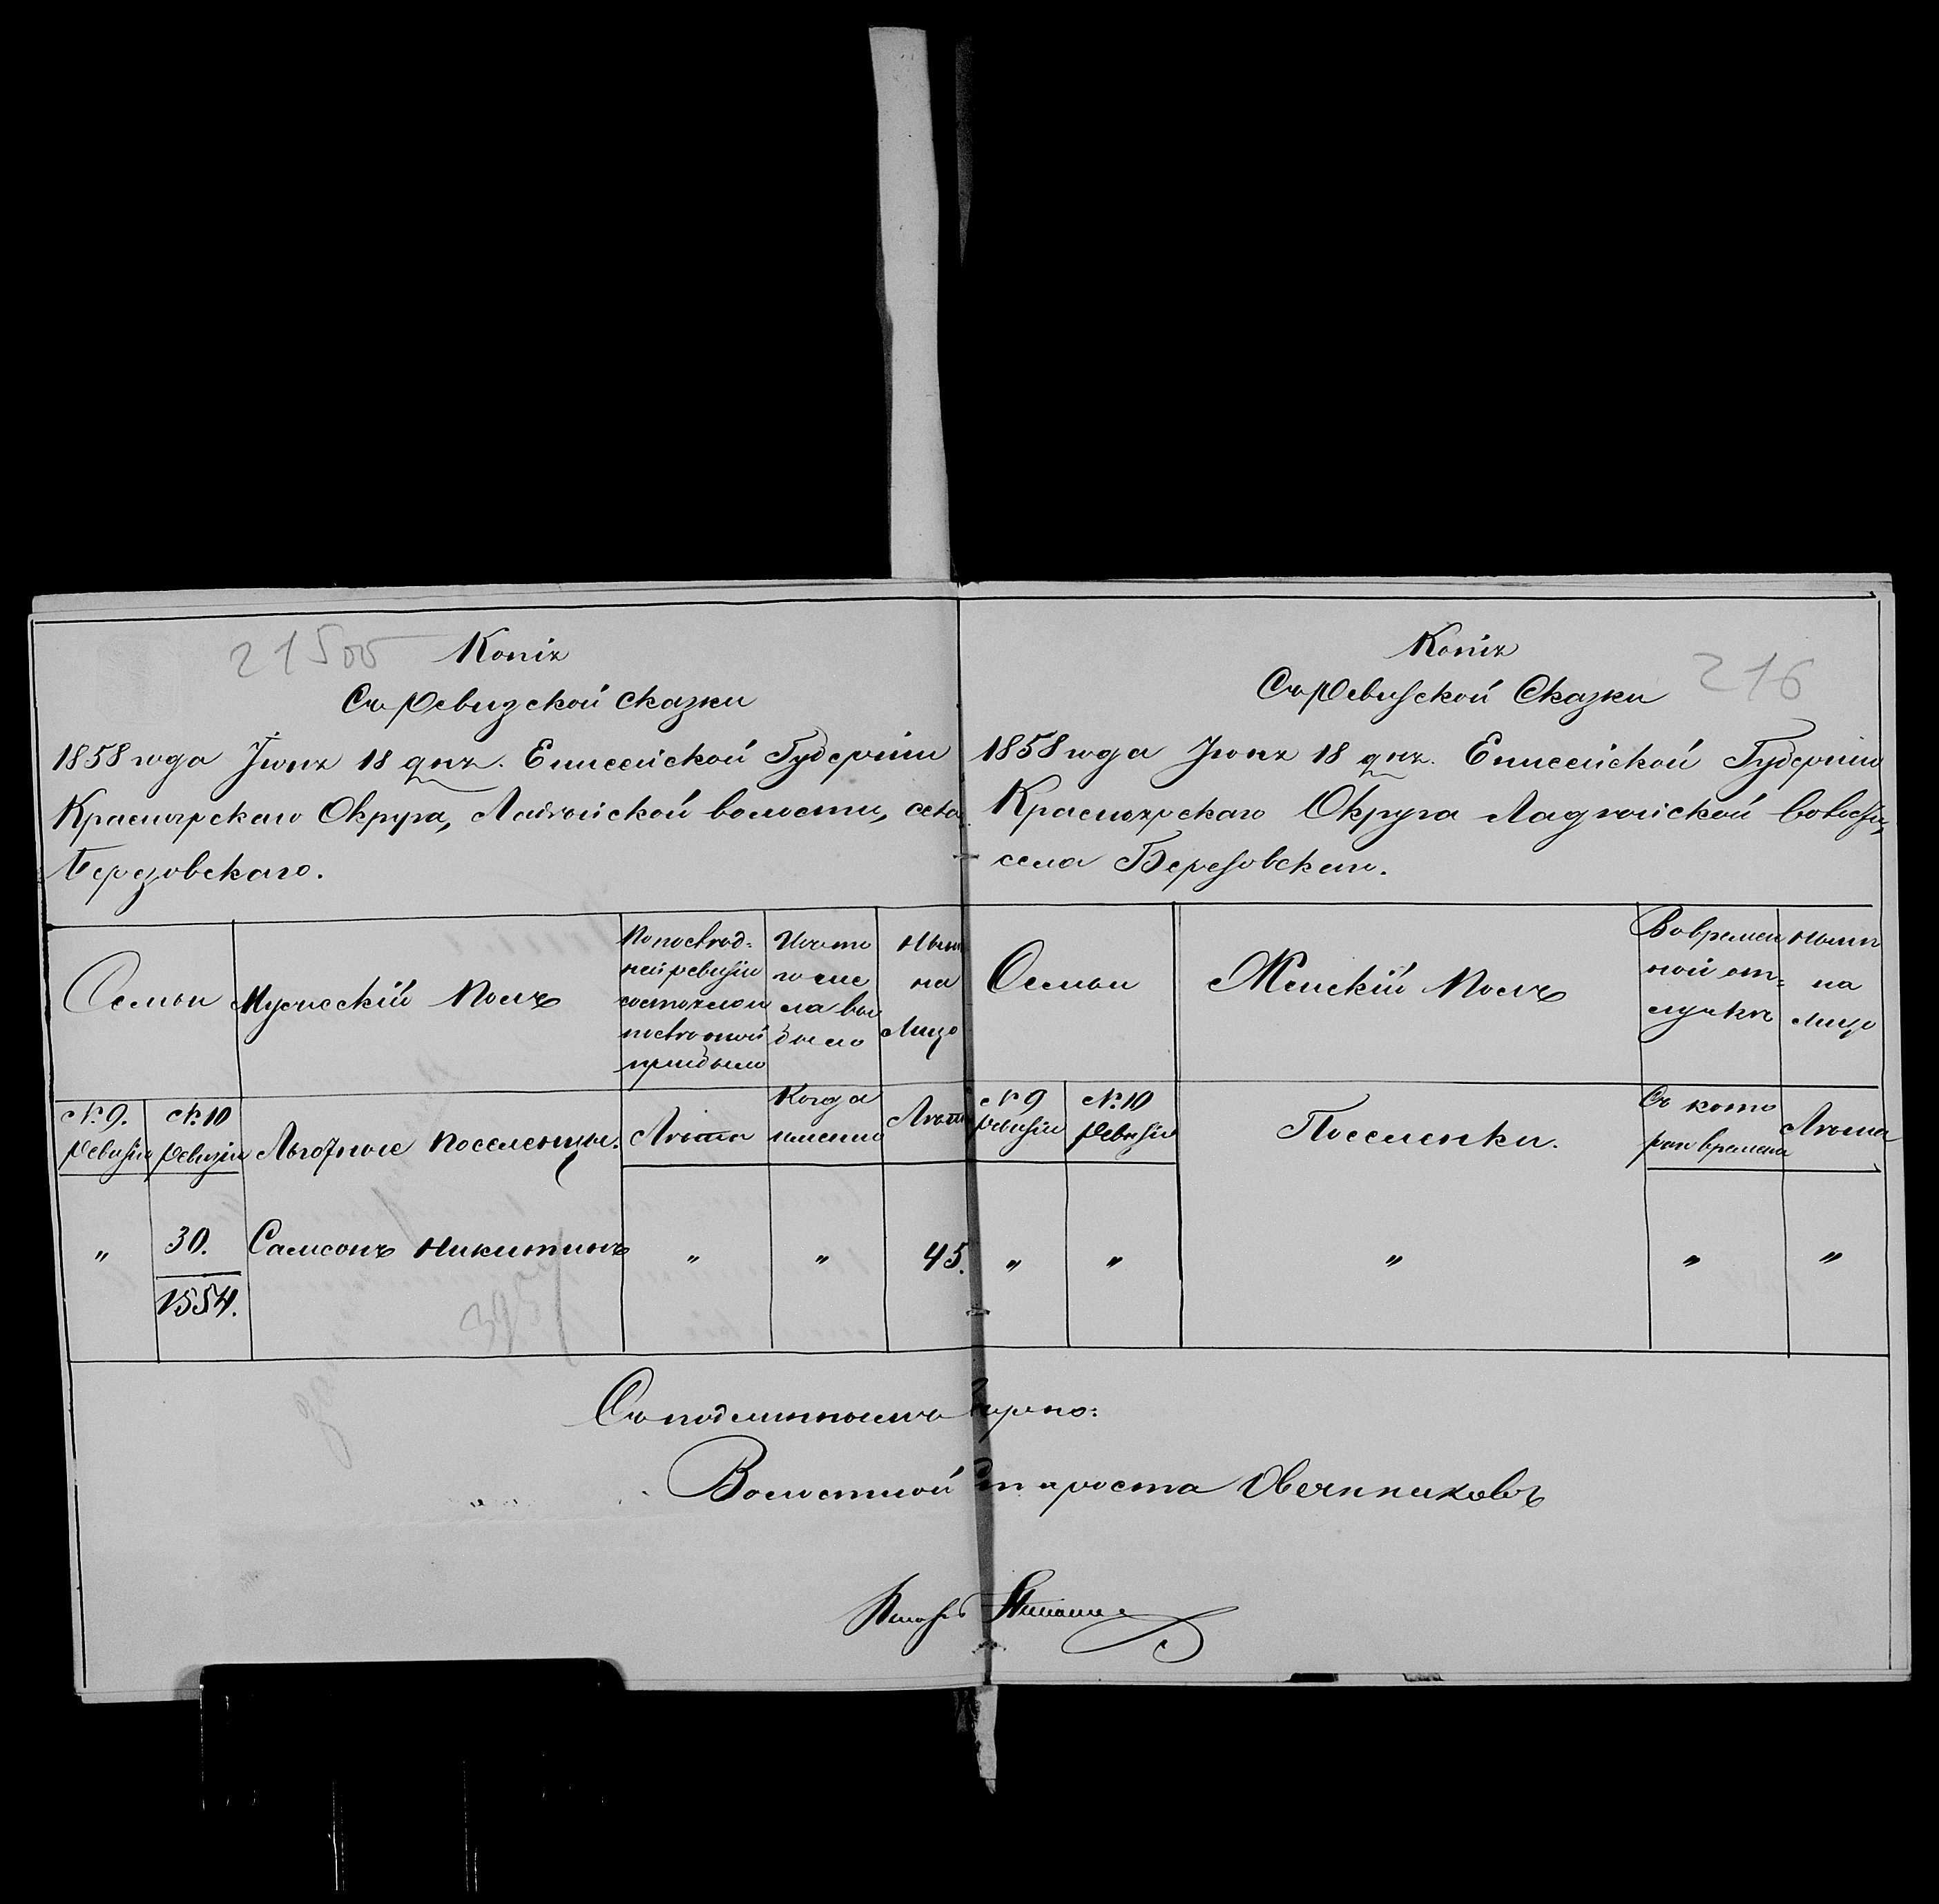 21500
Копія
Съ Ревизской Сказки
1858 года Іюня 18 дня. Енисейской Губерніи
Красноярскаго Округа, Ладѣйской волости, села
Березовскаго.
Семьи
Мужескій Полъ
По послѣд-
ней ревизіи
состояло и
послѣ оной
прибыло
Изъ то
го чис
ла вы
было
Нынѣ
на
Лицо
№ 9.
Ревизіи
№ 10
Ревизіи
Льготные Поселенцы.
Лѣта
Когда
именно
Лѣта
"
30.
1554.
Самсонъ Никитинъ
"
"
45.
216
Копія
Съ Ревизской Сказки
1858 года Іюня 18 дня. Енисейской Губерніи
Красноярскаго Округа Ладѣйской волости,
села Березовскаго.
Семьи
Женскій Полъ
Во времен
ной от-
лучкѣ
Нынѣ
на
лицо
№ 9
Ревизіи
№ 10
Ревизіи
Поселенки.
Съ кото
раго времени
Лѣта
"
"
"
"
"
Съ подлиннымъ вѣрно:
Волостной Староста Овчинниковъ